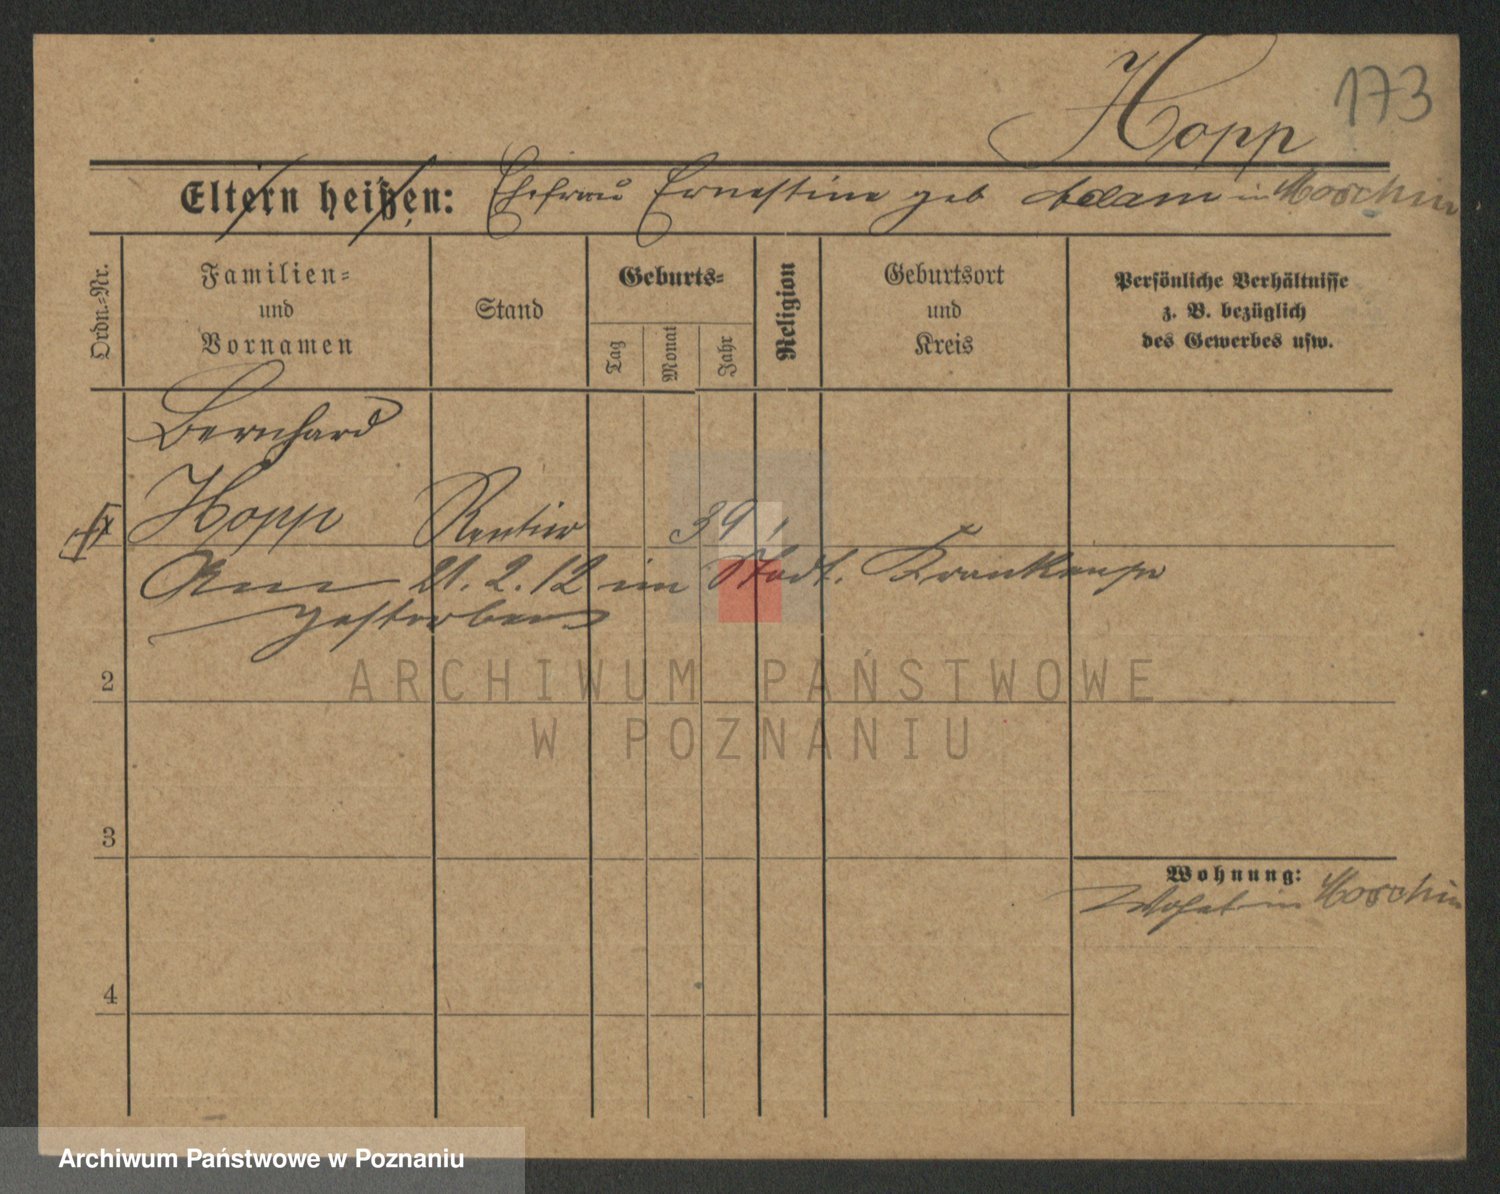 Hopp 173
Eltern heißen: Ehefrau Ernestine geb Adam in Moschin
Ordn.-Nr.
Familien-
und
Vornamen
Stand
Geburts-
Tag
Monat
Jahr
Religion
Geburtsort
und
Kreis
Persönliche Verhältnisse
z. B. bezüglich
des Gewerbes usw.
Bernhard
1 Hopp Rentier 39
Am 21. 2. 12 im Stadt. Krankenhs
gestorben
2
3
4
Wohnung:
Wohnt in Moschin
ARCHIWUM PAŃSTWOWE
W POZNANIU
Archiwum Państwowe w Poznaniu